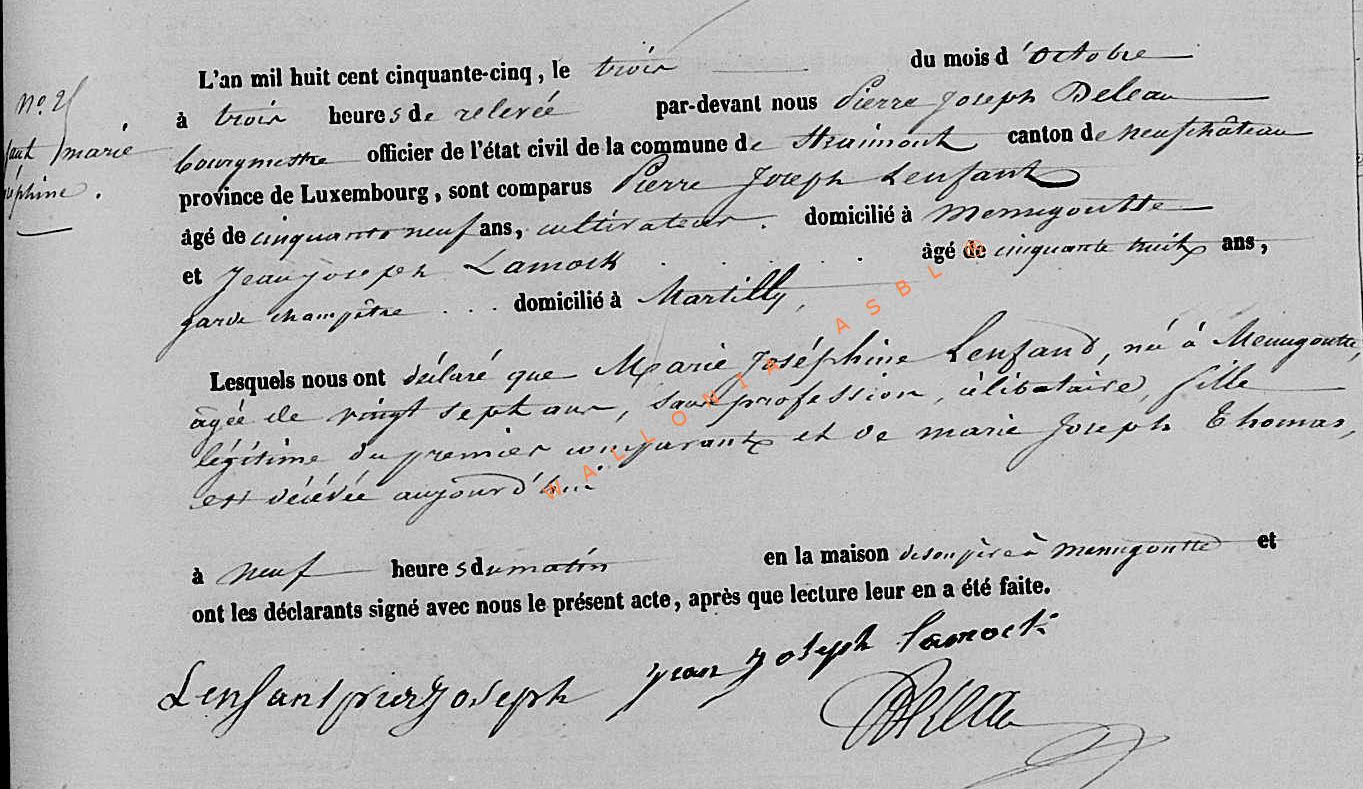 L'an mil huit cent cinquante-cinq, le trois du mois d'octobre
à trois heures de relevée par-devant nous Pierre Joseph Deleau
bourgmestre officier de l'état civil de la commune de Straimont canton de neufchâteau
province de Luxembourg, sont comparus Pierre Joseph Lenfant
âgé de cinquante neuf ans, cultivateur. domicilié à Menugoutte
et Jean joseph Lamock âgé de cinquante huit ans,
garde champêtre ... domicilié à Martilly,
Lesquels nous ont déclaré que Marie Joséphine Lenfand, né à Menugoutte,
âgée de vingt sept ans, sans profession, célibataire, fille
légitime du premier comparant et de marie Joseph Thomas,
est décédée aujourd'hui
à neuf heures du matin en la maison de son père à menugoutte et
ont les déclarants signé avec nous le présent acte, après que lecture leur en a été faite.
Lenfant pier Joseph jean Joseph lamock
Deleau
No. 2
fant marie
séphine.
WALLONIA ASBL